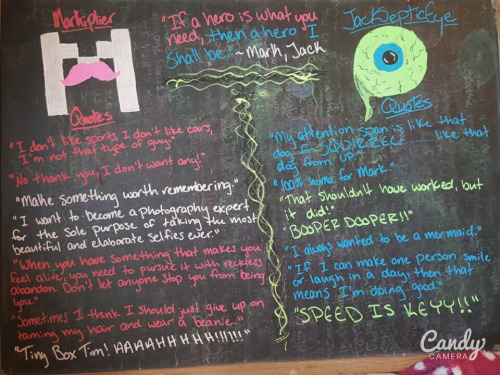 Markiplier
"If a hero is what you
need, then a hero I
shall be." ~Mark, Jack
JackSepticEye
Quotes
"I don't like sports, I don't like cars,
I'm not that type of guy."
"No thank you, I don't want any!"
"Make something worth remembering."
"I want to become a photography expert
for the sole purpose of taking the most
beautiful and elaborate selfies ever."
"When you have something that makes you
feel alive, you need to pursue it with reckless
abandon. Don't let anyone stop you from being
you."
"Sometimes I think I should just give up on
taming my hair and wear a beanie..."
"Tiny Box Tim! AAAAHHHHH!!!!!!"
Quotes
"My attention span is like that
dog, SQUIRREL! ...... like that
dog from UP."
"100% homo for Mark."
"That shouldn't have worked, but
it did!"
"BOOPER DOOPER!!"
"I always wanted to be a mermaid."
"If I can make one person smile
or laugh in a day, then that
means I'm doing good."
"SPEED IS KEYY!!"
Candy
CAMERA